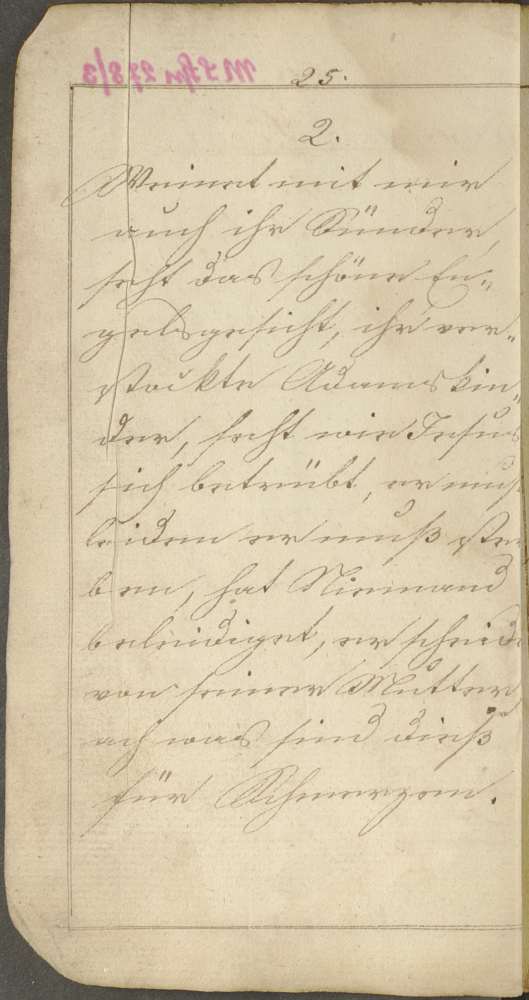 25.
2.
Weinet mit mir
auch ihr Sünder,
seht das schöne En„
gelsgesicht, ihr ver„
stockte Adamskin„
der, seht wie Jesus
sich betrübt, er muß
leiden er muß ster
ben, hat Niemand
beleidiget, er scheide
von seiner Mutter
ach was sind dieß
für Schmerzen.